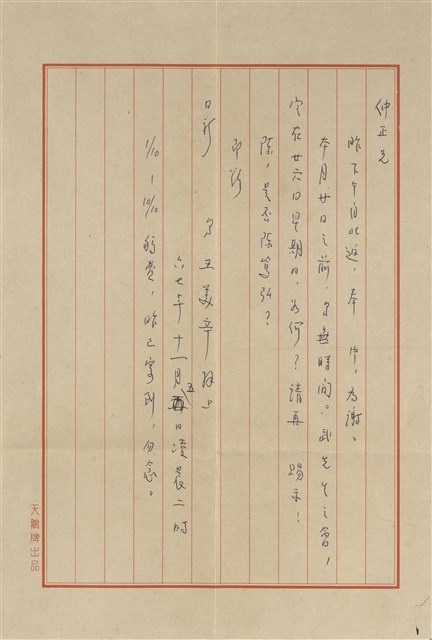 仲正兄
昨下午自北返，奉片，为謝。
本月廿日之前，了無時间。武先生之會，
定在廿六日星期日，如何？請再赐示！
陈，是否陈篤弘？
即祈
日新
弟王美辛拜上
六七年十一月五日凌晨二时
1/10－10/10稿费，昨已寄到，勿念。
天鵝牌出品